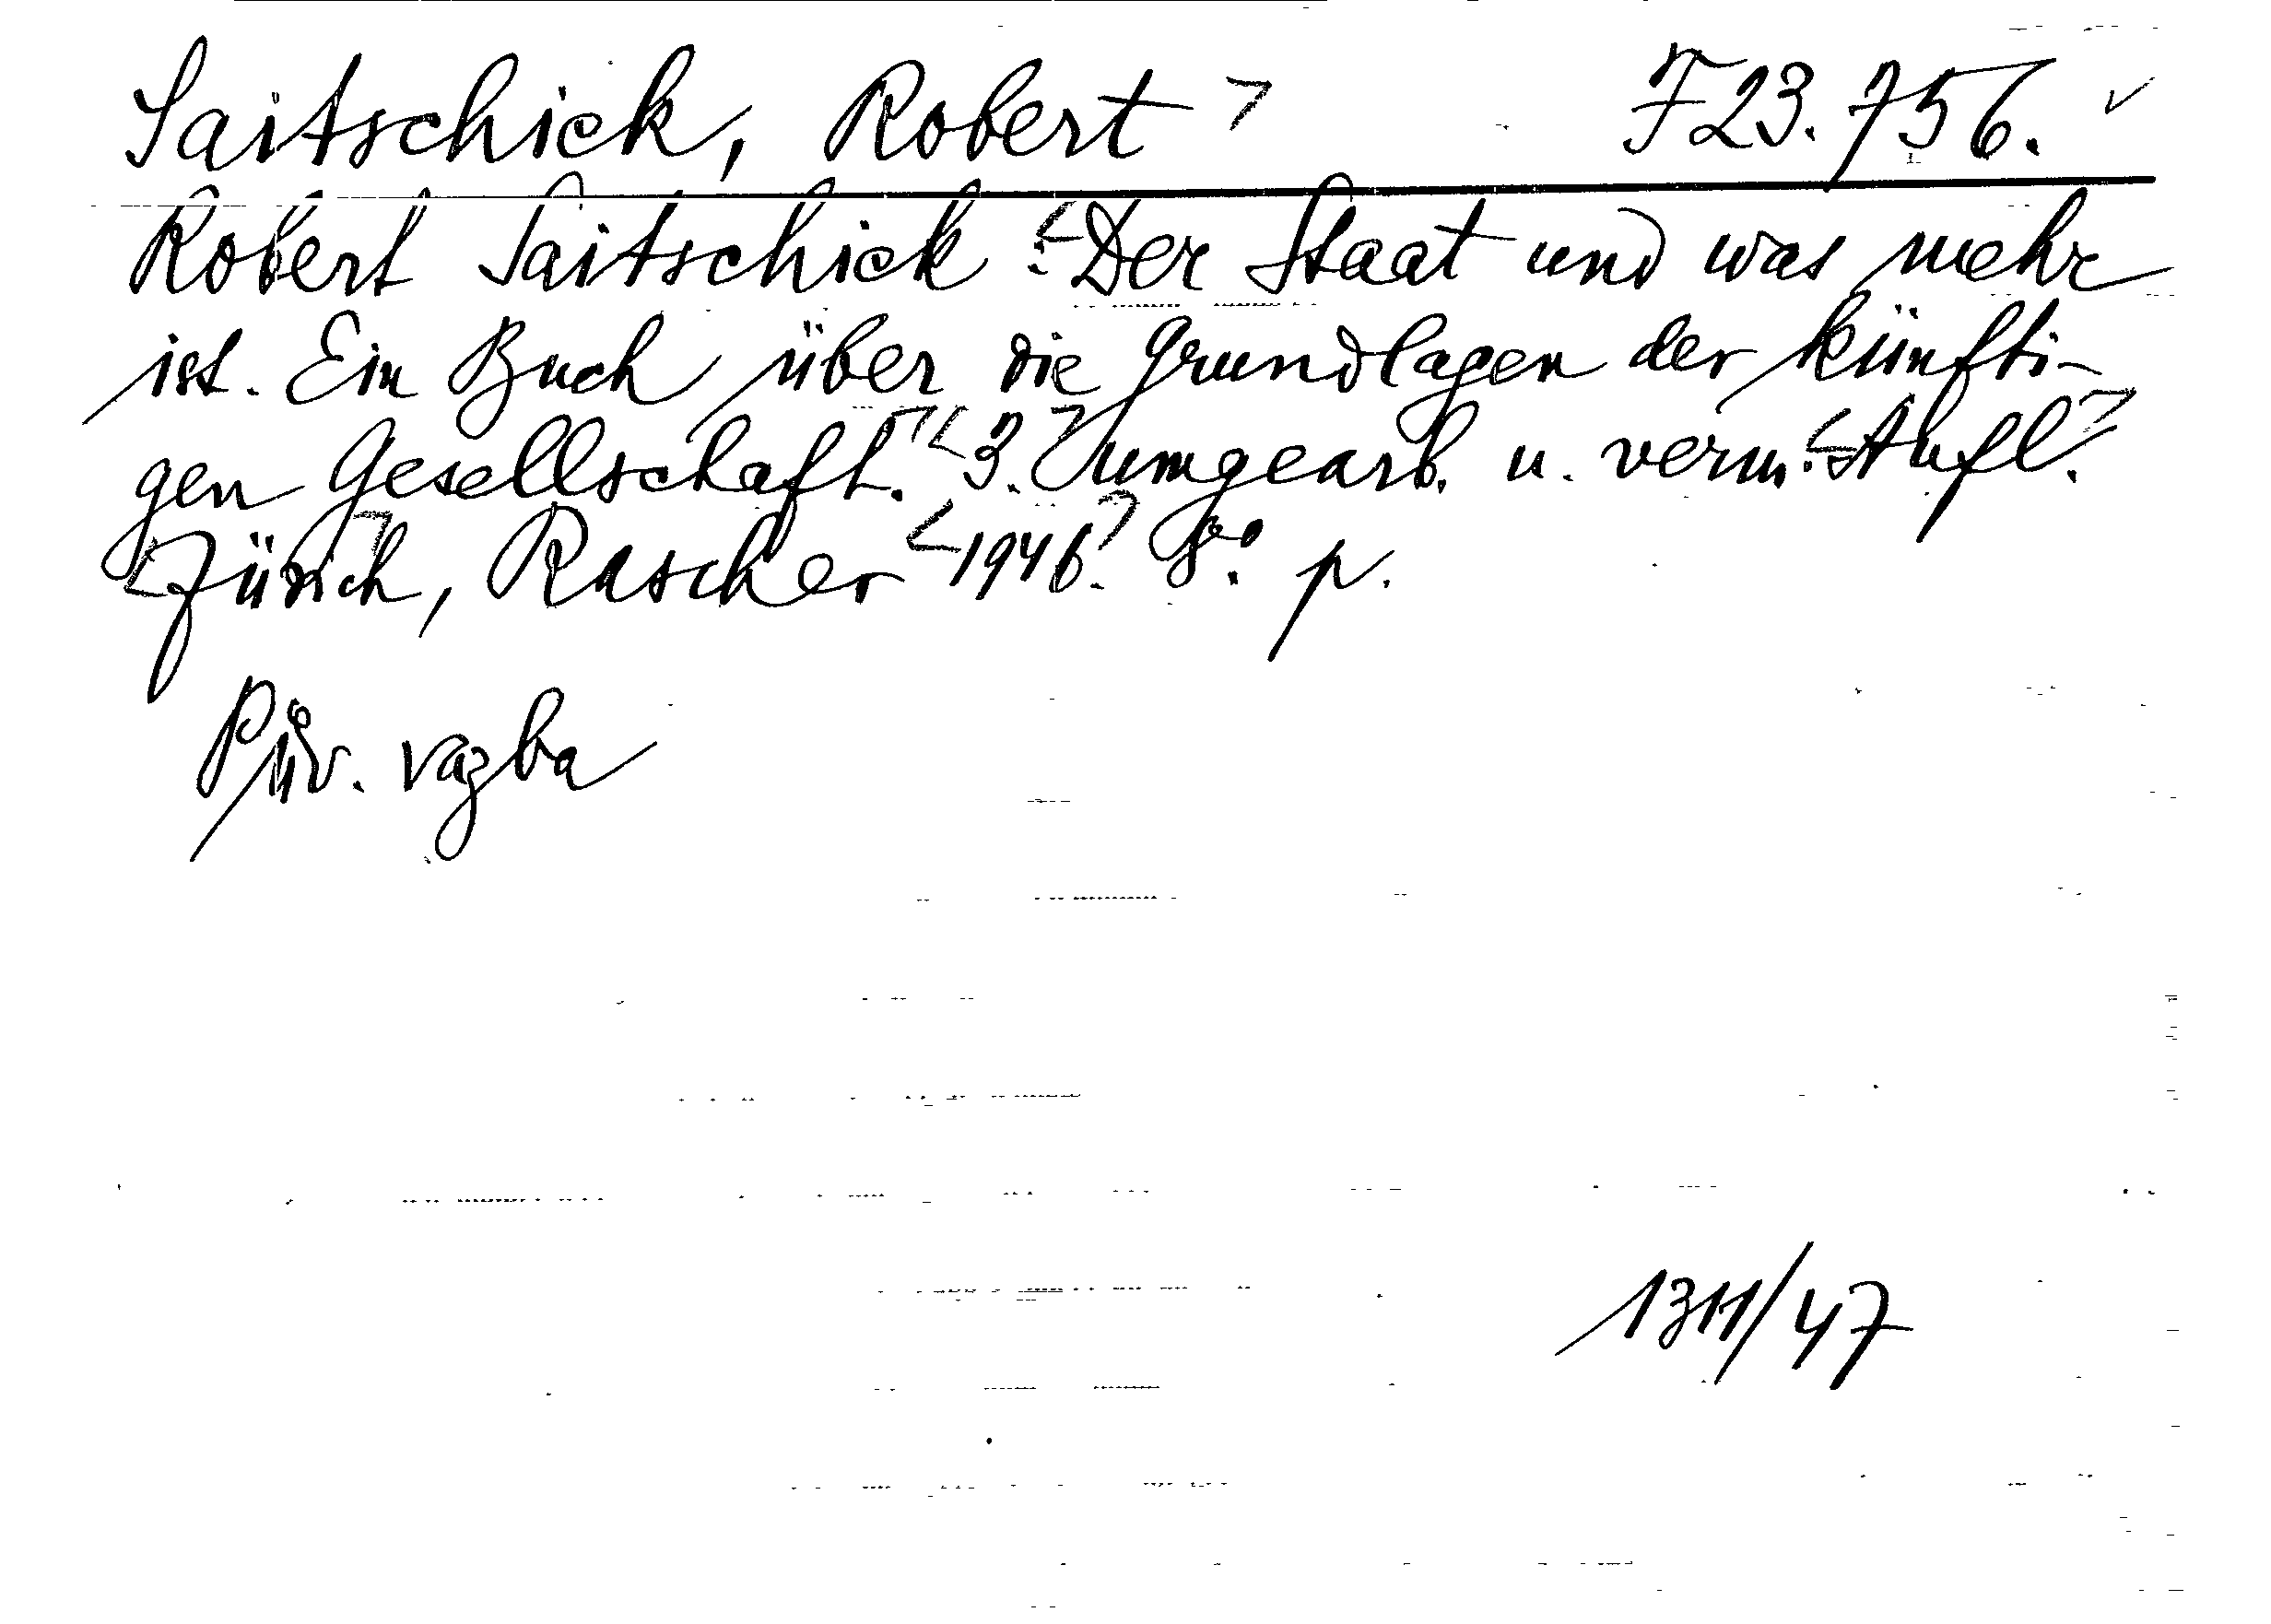 Saitschick, Robert F 23.756.
Robert Saitschick: Der Staat und was mehr
ist. Ein Buch über die Grundlagen der künfti-
gen Gesellschaft. 3. umgearb. u. verm. Aufl.
Zürich, Rascher 1946. 8°. p.
Pův. vazba
1311/47